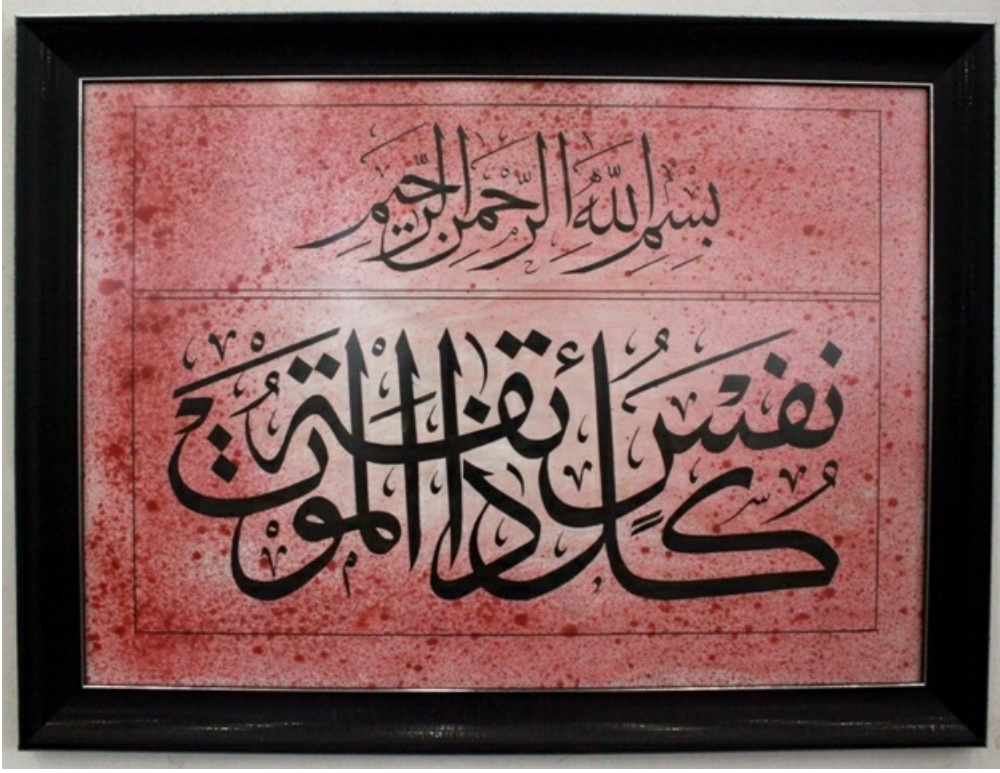 بِسْمِ اللّٰهِ الرَّحْمٰنِ الرَّحِيْمِ
كُلُّ نَفْسٍ ذَائِقَةُ الْمَوْتِ